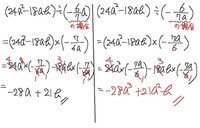 (24a²-18ab)÷(-6/7a)
の場合
=(24a²-18ab)×(-7/6a)
=24a²×(-7/6a)-18ab×(-7/6a)
=-28a+21b
(24a²-18ab)÷(-6/7a)
の場合
=(24a²-18ab)×(-7a/6)
=24a²×(-7a/6)-18ab×(-7a/6)
=-28a³+21a²b